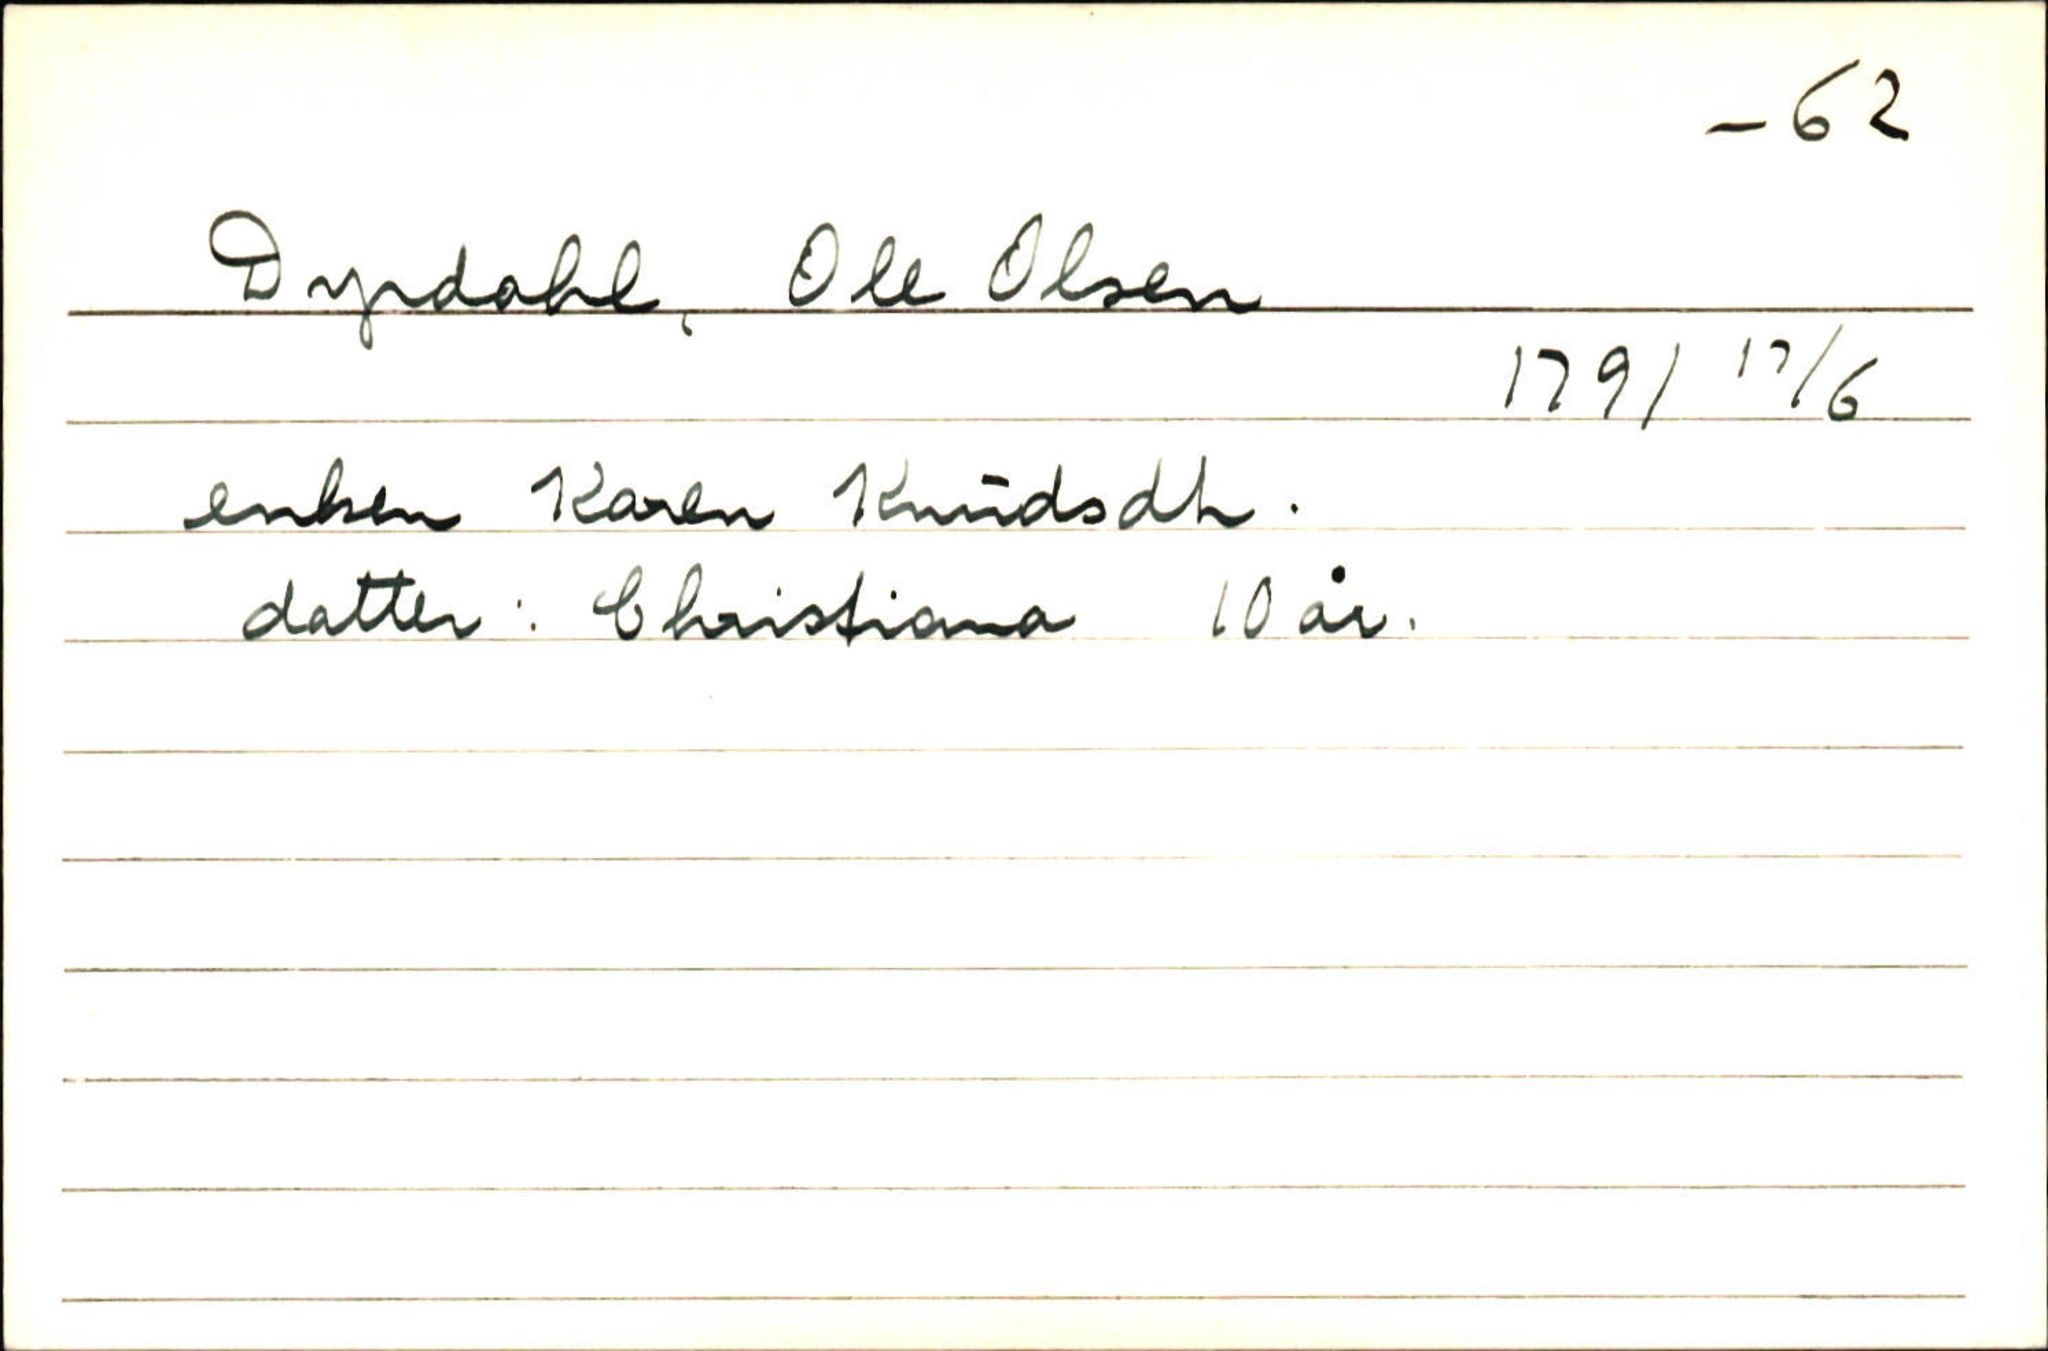 - 62
Dyrdahl, Ole Olsen
1791 17/6
enken Karen Knudsdtr.
datter: Christiana 10 år.